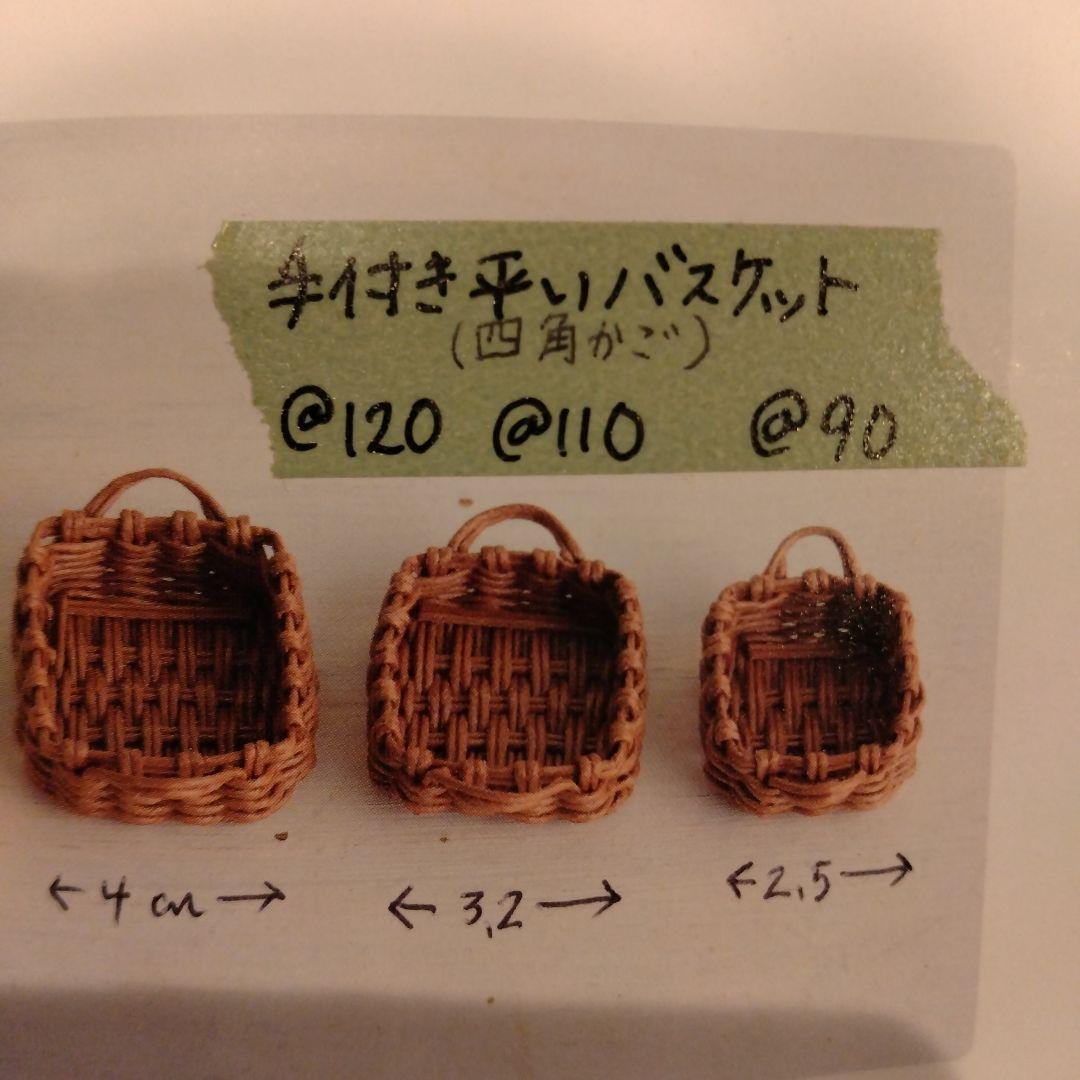 手付き平いバスケット
(四角かご)
@120 @110 @90
←4cm→ ←3,2→ ←2,5→